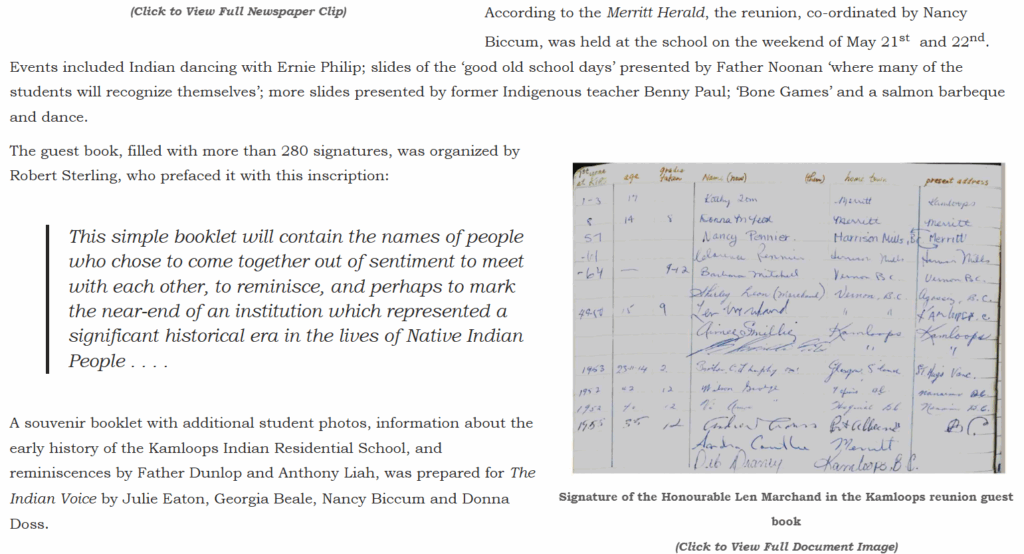 (Click to View Full Newspaper Clip)
According to the Merritt Herald, the reunion, co-ordinated by Nancy
Biccum, was held at the school on the weekend of May 21st and 22nd.
Events included Indian dancing with Ernie Philip; slides of the ‘good old school days’ presented by Father Noonan ‘where many of the
students will recognize themselves’; more slides presented by former Indigenous teacher Benny Paul; ‘Bone Games’ and a salmon barbeque
and dance.
The guest book, filled with more than 280 signatures, was organized by
Robert Sterling, who prefaced it with this inscription:
This simple booklet will contain the names of people
who chose to come together out of sentiment to meet
with each other, to reminisce, and perhaps to mark
the near-end of an institution which represented a
significant historical era in the lives of Native Indian
People . . . .
A souvenir booklet with additional student photos, information about the
early history of the Kamloops Indian Residential School, and
reminiscences by Father Dunlop and Anthony Liah, was prepared for The
Indian Voice by Julie Eaton, Georgia Beale, Nancy Biccum and Donna
Doss.
age Name (now) (then) home town present address
1-3 17 Merritt Kamloops
8 14 8 Merritt Merritt
57 Nancy Pennier Harrison Mills, BC Merritt
-64 — 9-12 Barbara Mitchell Vernon B.C. Vernon B.C.
Shirley Leon (Marchand) Vernon, B.C.
15 9 Len Marchand Kamloops
Aimee Kamloops Kamloops
1953 2
1952 12
1955 55 12 B.C.
Sandra Merritt
Deb Kamloops, B.C.
Signature of the Honourable Len Marchand in the Kamloops reunion guest
book
(Click to View Full Document Image)